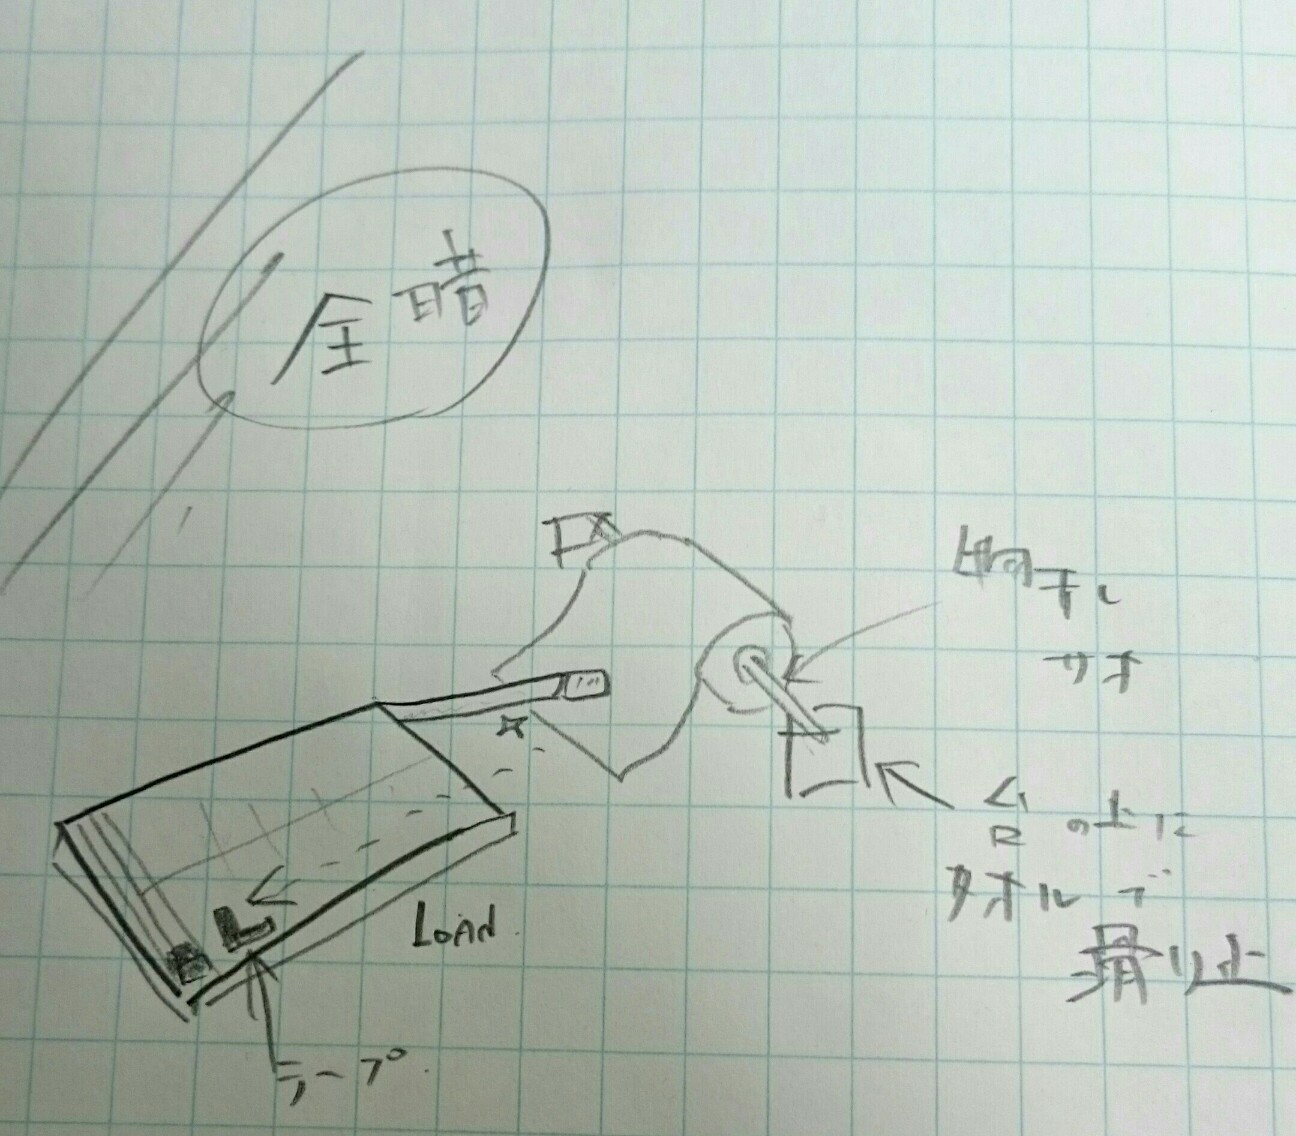 全暗
物干し
サオ
台の上に
タオルで
滑り止
LOAD
テープ